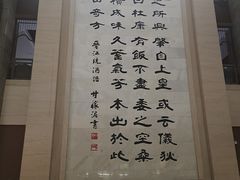 之所興肇自上皇或云儀狄
曰杜康有飯不盡委之空桑
味久蓄氣芳本出於此
奇方
晉江統酒誥
書